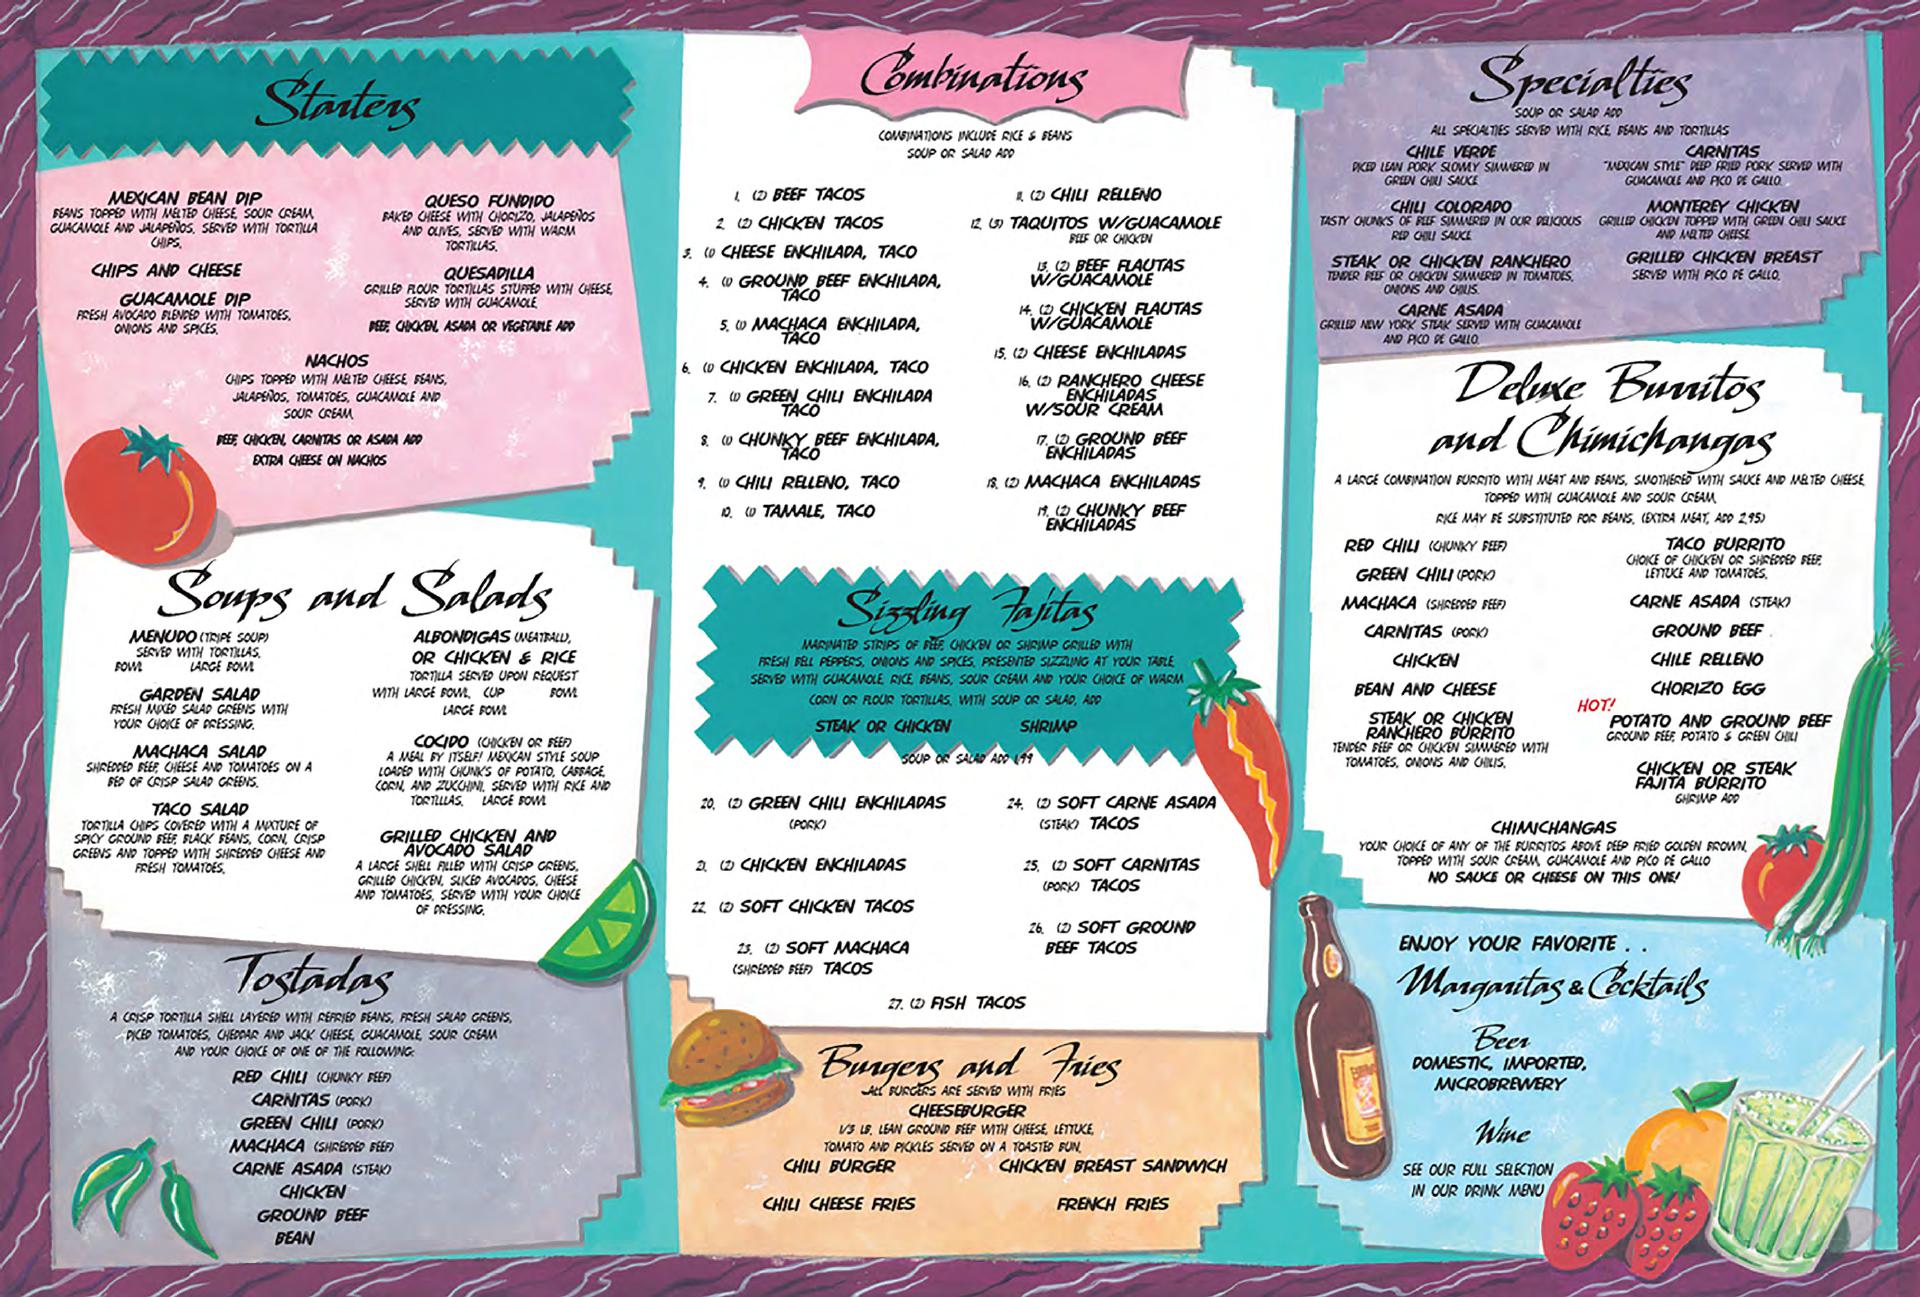 Starters
MEXICAN BEAN DIP
BEANS TOPPED WITH MELTED CHEESE, SOUR CREAM,
GUACAMOLE AND JALAPEÑOS. SERVED WITH TORTILLA
CHIPS.
CHIPS AND CHEESE
GUACAMOLE DIP
FRESH AVOCADO BLENDED WITH TOMATOES,
ONIONS AND SPICES.
QUESO FUNDIDO
BAKED CHEESE WITH CHORIZO, JALAPEÑOS
AND OLIVES, SERVED WITH WARM
TORTILLAS.
QUESADILLA
GRILLED FLOUR TORTILLAS STUFFED WITH CHEESE,
SERVED WITH GUACAMOLE.
BEEF, CHICKEN, ASADA OR VEGETABLE ADD
NACHOS
CHIPS TOPPED WITH MELTED CHEESE, BEANS,
JALAPEÑOS, TOMATOES, GUACAMOLE AND
SOUR CREAM.
BEEF, CHICKEN, CARNITAS OR ASADA ADD
EXTRA CHEESE ON NACHOS
Soups and Salads
MENUDO (TRIPE SOUP)
SERVED WITH TORTILLAS.
BOWL LARGE BOWL
GARDEN SALAD
FRESH MIXED SALAD GREENS WITH
YOUR CHOICE OF DRESSING.
MACHACA SALAD
SHREDDED BEEF, CHEESE AND TOMATOES ON A
BED OF CRISP SALAD GREENS.
TACO SALAD
TORTILLA CHIPS COVERED WITH A MIXTURE OF
SPICY GROUND BEEF, BLACK BEANS, CORN, CRISP
GREENS AND TOPPED WITH SHREDDED CHEESE AND
FRESH TOMATOES.
ALBONDIGAS (MEATBALL),
OR CHICKEN & RICE
TORTILLA SERVED UPON REQUEST
WITH LARGE BOWL. CUP BOWL
LARGE BOWL
COCIDO (CHICKEN OR BEEF)
A MEAL BY ITSELF! MEXICAN STYLE SOUP
LOADED WITH CHUNKS OF POTATO, CABBAGE,
CORN, AND ZUCCHINI. SERVED WITH RICE AND
TORTILLAS. LARGE BOWL
GRILLED CHICKEN AND
AVOCADO SALAD
A LARGE SHELL FILLED WITH CRISP GREENS,
GRILLED CHICKEN, SLICED AVOCADOS, CHEESE
AND TOMATOES, SERVED WITH YOUR CHOICE
OF DRESSING.
Tostadas
A CRISP TORTILLA SHELL LAYERED WITH REFRIED BEANS, FRESH SALAD GREENS,
DICED TOMATOES, CHEDDAR AND JACK CHEESE, GUACAMOLE, SOUR CREAM
AND YOUR CHOICE OF ONE OF THE FOLLOWING:
RED CHILI (CHUNKY BEEF)
CARNITAS (PORK)
GREEN CHILI (PORK)
MACHACA (SHREDDED BEEF)
CARNE ASADA (STEAK)
CHICKEN
GROUND BEEF
BEAN
Combinations
COMBINATIONS INCLUDE RICE & BEANS
SOUP OR SALAD ADD
1. (2) BEEF TACOS
2. (2) CHICKEN TACOS
3. (1) CHEESE ENCHILADA, TACO
4. (1) GROUND BEEF ENCHILADA,
TACO
5. (1) MACHACA ENCHILADA,
TACO
6. (1) CHICKEN ENCHILADA, TACO
7. (1) GREEN CHILI ENCHILADA
TACO
8. (1) CHUNKY BEEF ENCHILADA,
TACO
9. (1) CHILI RELLENO, TACO
10. (1) TAMALE, TACO
11. (2) CHILI RELLENO
12. (3) TAQUITOS W/GUACAMOLE
BEEF OR CHICKEN
13. (2) BEEF FLAUTAS
W/GUACAMOLE
14. (2) CHICKEN FLAUTAS
W/GUACAMOLE
15. (2) CHEESE ENCHILADAS
16. (2) RANCHERO CHEESE
ENCHILADAS
W/SOUR CREAM
17. (2) GROUND BEEF
ENCHILADAS
18. (2) MACHACA ENCHILADAS
19. (2) CHUNKY BEEF
ENCHILADAS
Sizzling Fajitas
MARINATED STRIPS OF BEEF, CHICKEN OR SHRIMP GRILLED WITH
FRESH BELL PEPPERS, ONIONS AND SPICES. PRESENTED SIZZLING AT YOUR TABLE,
SERVED WITH GUACAMOLE, RICE, BEANS, SOUR CREAM AND YOUR CHOICE OF WARM
CORN OR FLOUR TORTILLAS, WITH SOUP OR SALAD, ADD
STEAK OR CHICKEN SHRIMP
SOUP OR SALAD ADD 1.99
20. (2) GREEN CHILI ENCHILADAS
(PORK)
21. (2) CHICKEN ENCHILADAS
22. (2) SOFT CHICKEN TACOS
23. (2) SOFT MACHACA
(SHREDDED BEEF) TACOS
24. (2) SOFT CARNE ASADA
(STEAK) TACOS
25. (2) SOFT CARNITAS
(PORK) TACOS
26. (2) SOFT GROUND
BEEF TACOS
27. (2) FISH TACOS
Burgers and Fries
ALL BURGERS ARE SERVED WITH FRIES
CHEESEBURGER
1/3 LB. LEAN GROUND BEEF WITH CHEESE, LETTUCE,
TOMATO AND PICKLES SERVED ON A TOASTED BUN.
CHILI BURGER CHICKEN BREAST SANDWICH
CHILI CHEESE FRIES FRENCH FRIES
Specialties
SOUP OR SALAD ADD
ALL SPECIALTIES SERVED WITH RICE, BEANS AND TORTILLAS
CHILE VERDE
DICED LEAN PORK SLOWLY SIMMERED IN
GREEN CHILI SAUCE
CHILI COLORADO
TASTY CHUNKS OF BEEF SIMMERED IN OUR DELICIOUS
RED CHILI SAUCE
STEAK OR CHICKEN RANCHERO
TENDER BEEF OR CHICKEN SIMMERED IN TOMATOES,
ONIONS AND CHILIS.
CARNE ASADA
GRILLED NEW YORK STEAK SERVED WITH GUACAMOLE
AND PICO DE GALLO.
CARNITAS
"MEXICAN STYLE" DEEP FRIED PORK SERVED WITH
GUACAMOLE AND PICO DE GALLO.
MONTEREY CHICKEN
GRILLED CHICKEN TOPPED WITH GREEN CHILI SAUCE
AND MELTED CHEESE.
GRILLED CHICKEN BREAST
SERVED WITH PICO DE GALLO.
Deluxe Burritos
and Chimichangas
A LARGE COMBINATION BURRITO WITH MEAT AND BEANS, SMOTHERED WITH SAUCE AND MELTED CHEESE,
TOPPED WITH GUACAMOLE AND SOUR CREAM.
RICE MAY BE SUBSTITUTED FOR BEANS. (EXTRA MEAT, ADD 2.95)
RED CHILI (CHUNKY BEEF)
GREEN CHILI (PORK)
MACHACA (SHREDDED BEEF)
CARNITAS (PORK)
CHICKEN
BEAN AND CHEESE
STEAK OR CHICKEN
RANCHERO BURRITO
TENDER BEEF OR CHICKEN SIMMERED WITH
TOMATOES, ONIONS AND CHILIS.
TACO BURRITO
CHOICE OF CHICKEN OR SHREDDED BEEF,
LETTUCE AND TOMATOES.
CARNE ASADA (STEAK)
GROUND BEEF
CHILE RELLENO
CHORIZO EGG
HOT!
POTATO AND GROUND BEEF
GROUND BEEF, POTATO & GREEN CHILI
CHICKEN OR STEAK
FAJITA BURRITO
SHRIMP ADD
CHIMICHANGAS
YOUR CHOICE OF ANY OF THE BURRITOS ABOVE DEEP FRIED GOLDEN BROWN,
TOPPED WITH SOUR CREAM, GUACAMOLE AND PICO DE GALLO
NO SAUCE OR CHEESE ON THIS ONE!
ENJOY YOUR FAVORITE . .
Margaritas & Cocktails
Beer
DOMESTIC, IMPORTED,
MICROBREWERY
Wine
SEE OUR FULL SELECTION
IN OUR DRINK MENU